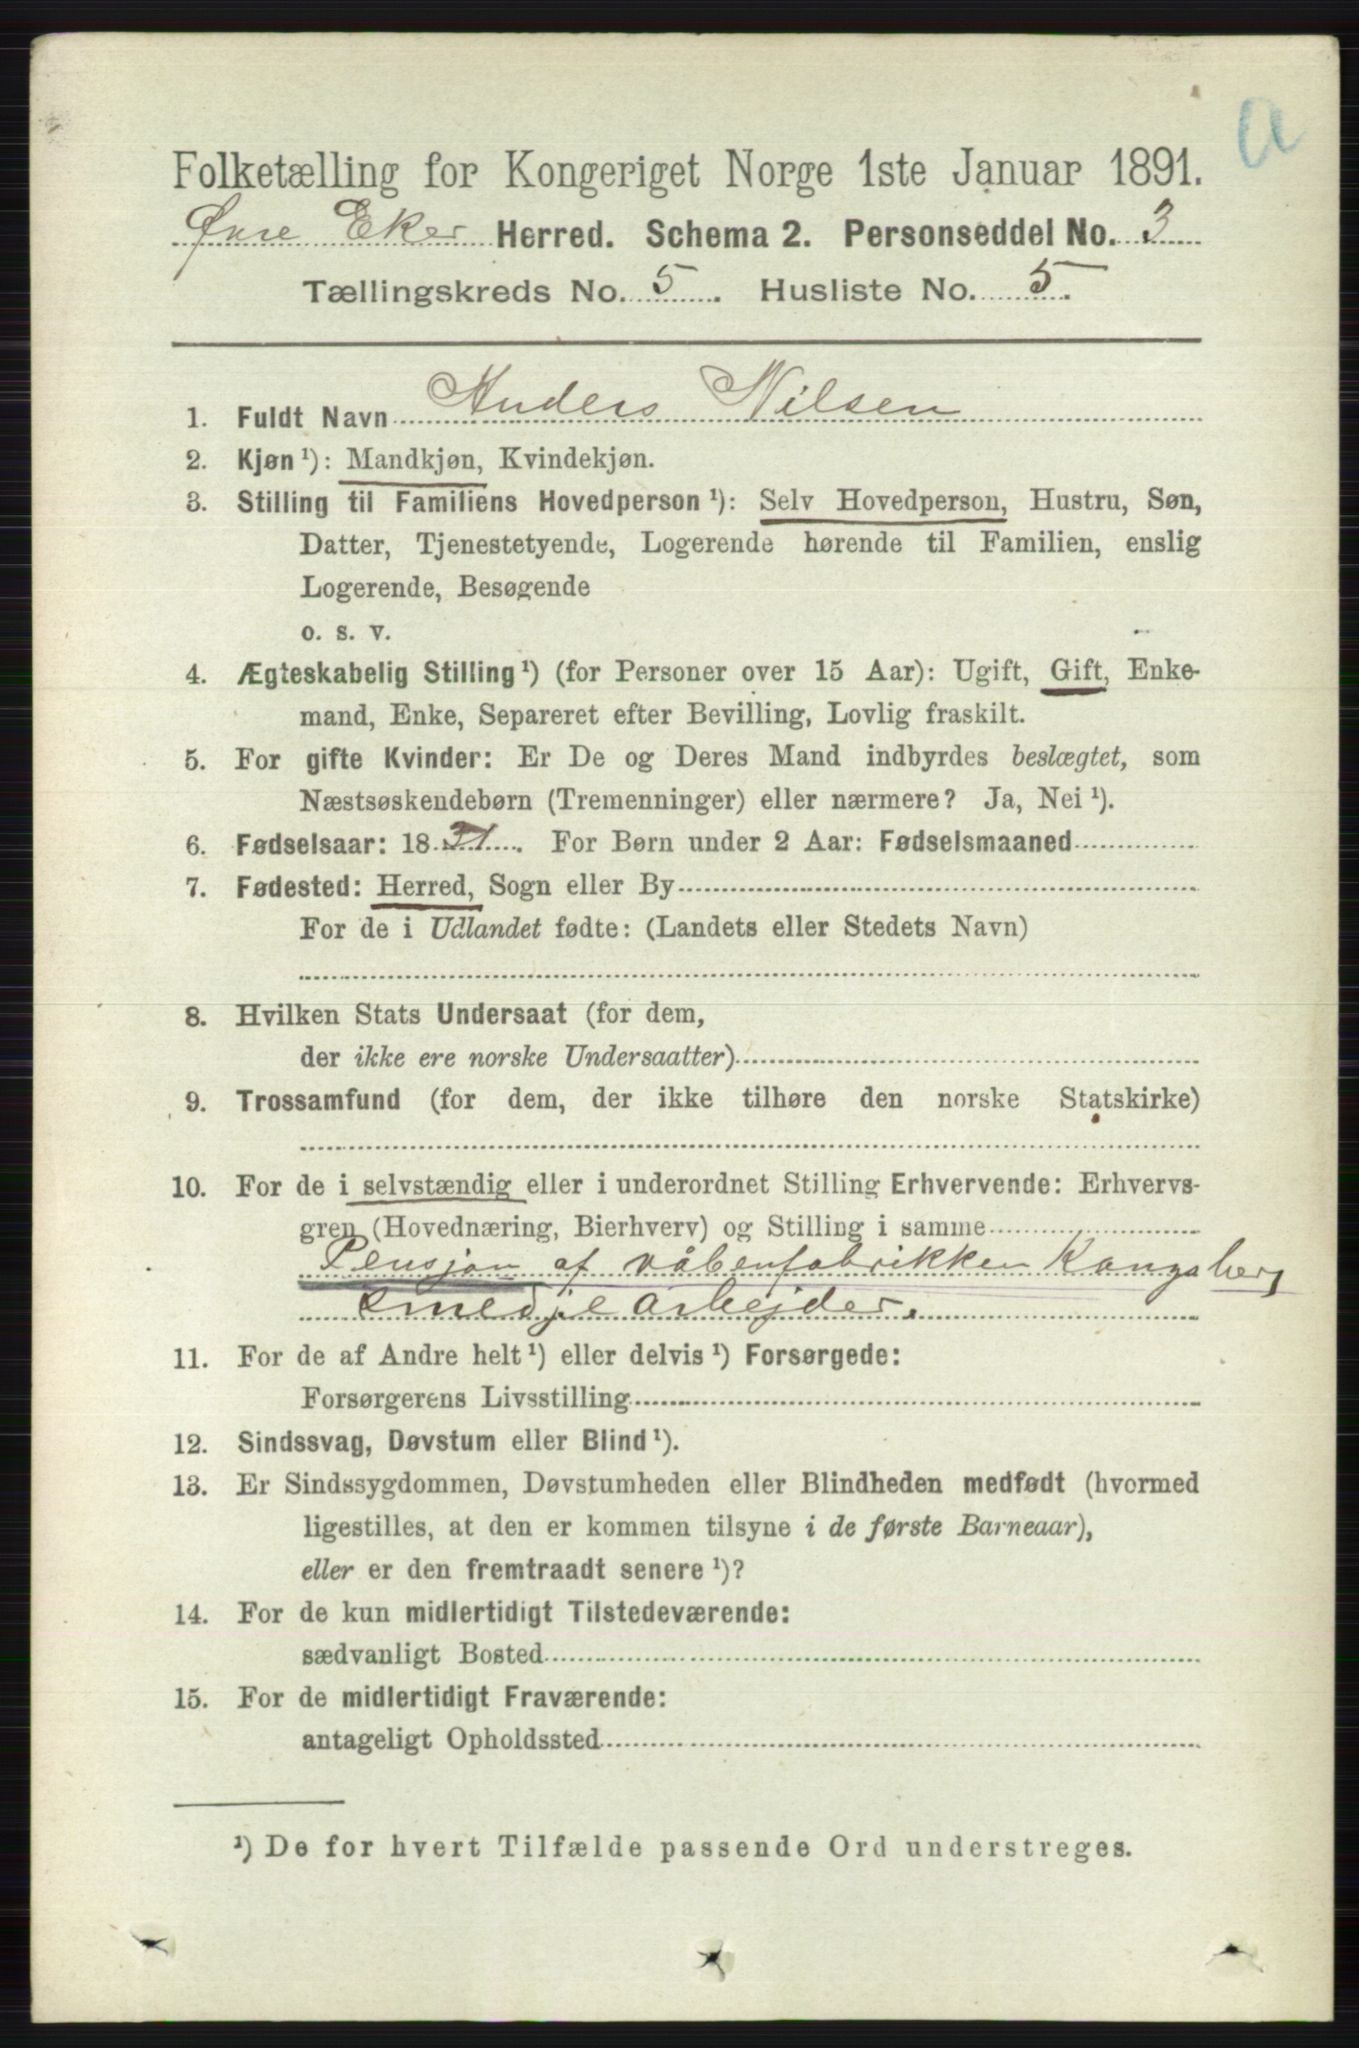 a
Folketælling for Kongeriget Norge 1ste Januar 1891.
Øvre Eker Herred. Schema 2. Personseddel No. 3
Tællingskreds No. 5. Husliste No. 5.
1. Fuldt Navn Anders Nilsen
2. Kjøn ¹): Mandkjøn, Kvindekjøn.
3. Stilling til Familiens Hovedperson ¹): Selv Hovedperson, Hustru, Søn,
Datter, Tjenestetyende, Logerende hørende til Familien, enslig
Logerende, Besøgende
o. s. v.
4. Ægteskabelig Stilling ¹) (for Personer over 15 Aar): Ugift, Gift, Enke-
mand, Enke, Separeret efter Bevilling, Lovlig fraskilt.
5. For gifte Kvinder: Er De og Deres Mand indbyrdes beslægtet, som
Næstsøskendebørn (Tremenninger) eller nærmere? Ja, Nei ¹).
6. Fødselsaar: 1831. For Børn under 2 Aar: Fødselsmaaned
7. Fødested: Herred, Sogn eller By
For de i Udlandet fødte: (Landets eller Stedets Navn)
8. Hvilken Stats Undersaat (for dem,
der ikke ere norske Undersaatter)
9. Trossamfund (for dem, der ikke tilhøre den norske Statskirke)
10. For de i selvstændig eller i underordnet Stilling Erhvervende: Erhvervs-
gren (Hovednæring, Bierhverv) og Stilling i samme
Pensjon af våbenfabrikken Kongsberg
smedjearbejder.
11. For de af Andre helt ¹) eller delvis ¹) Forsørgede:
Forsørgerens Livsstilling
12. Sindssvag, Døvstum eller Blind ¹).
13. Er Sindssygdommen, Døvstumheden eller Blindheden medfødt (hvormed
ligestilles, at den er kommen tilsyne i de første Barneaar),
eller er den fremtraadt senere ¹)?
14. For de kun midlertidigt Tilstedeværende:
sædvanligt Bosted
15. For de midlertidigt Fraværende:
antageligt Opholdssted
¹) De for hvert Tilfælde passende Ord understreges.